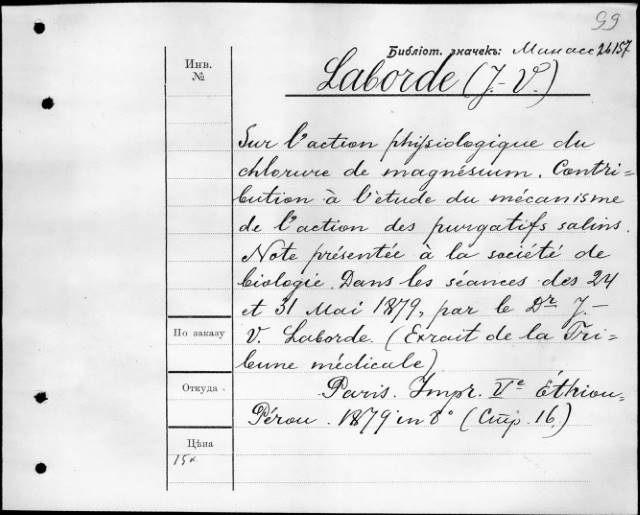 99
Библіот. значекъ: Минасс 26157.
Инв.
№
Laborde (J.-V.)
Sur l'action physiologique du
chlorure de magnésium. Contri=
bution à l'étude du mécanisme
de l'action des purgatifs salins.
Note présentée à la société de
biologie. Dans les séances des 24
et 31 Mai 1879, par le Dr J.-
V. Laborde. (Exrait de la Tri=
bune médicale)
По заказу
Откуда
Paris. Impr. Vᵉ Éthiou-
Pérou. 1879 in 8° (Стр. 16.)
Цѣна
15к